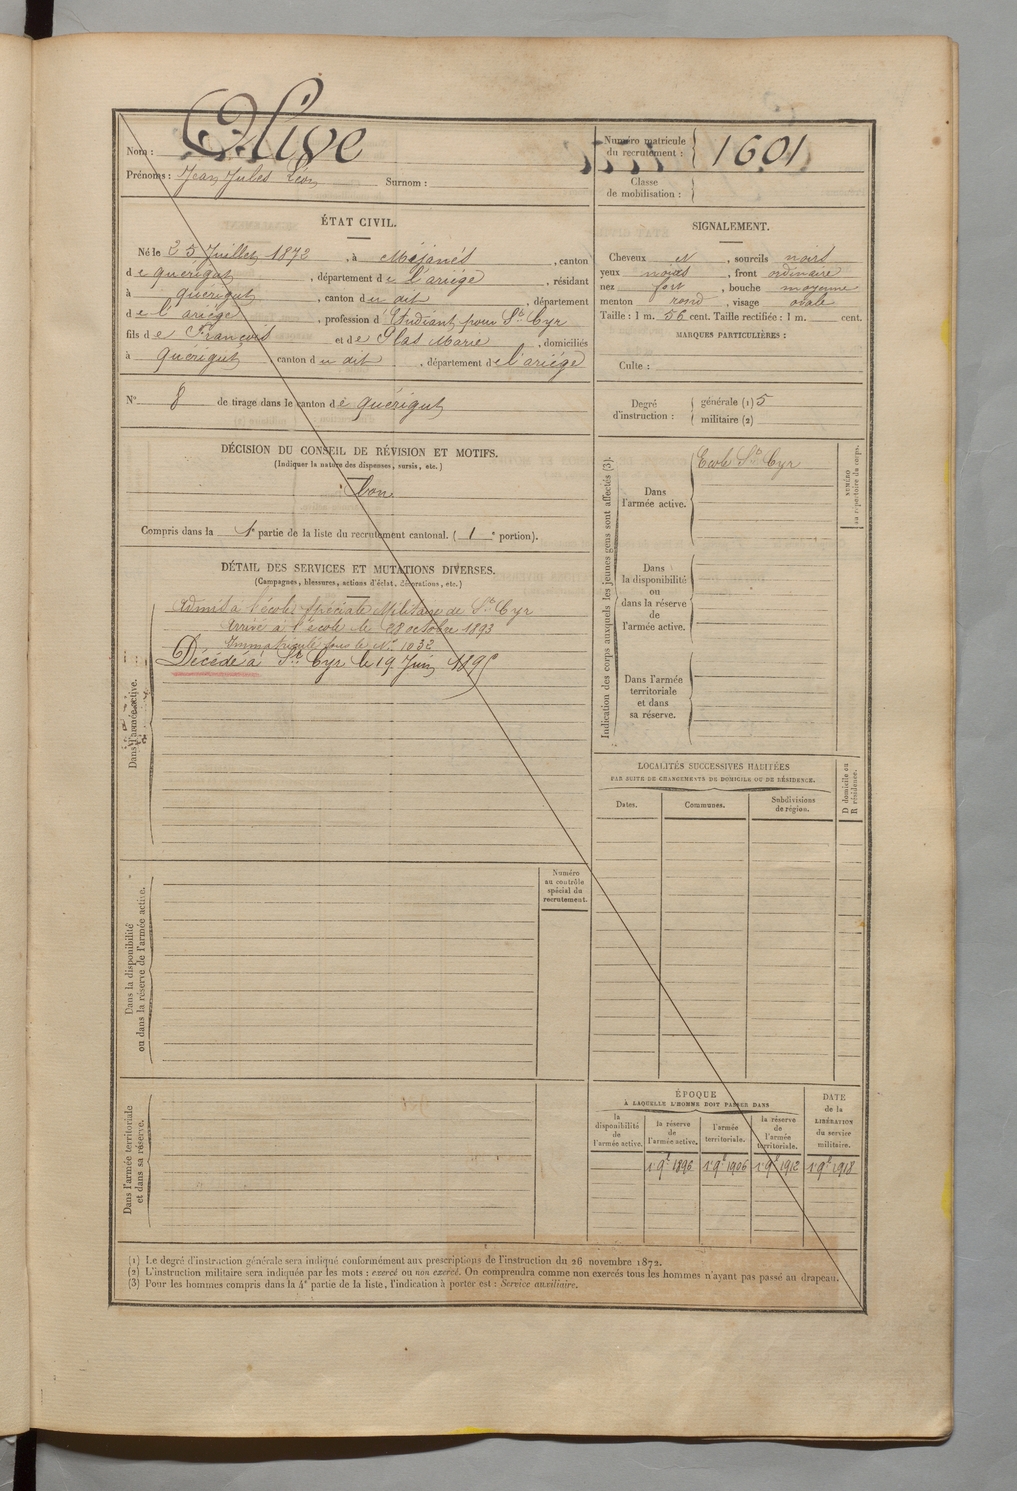 Nom : Olive
Prénoms : Jean Jules Léon Surnom :
Numéro matricule
du recrutement : 1601
Classe
de mobilisation :
ÉTAT CIVIL.
Né le 25 Juillet 1872, à Méjanés, canton
de quérigut, département de l'ariége, résidant
à quérigut, canton du dit, département
de l'ariége, profession d'Etudiant pour St Cyr
fils de François et de Glas Marie, domiciliés
à Quérigut, canton du dit, département de l'ariége
N° 8 de tirage dans le canton de quérigut
SIGNALEMENT.
Cheveux N, sourcils noirs
yeux noirs, front ordinaire
nez fort, bouche moyenne
menton rond, visage ovale
Taille : 1 m. 56 cent. Taille rectifiée : 1 m. cent.
MARQUES PARTICULIÈRES :
Culte :
Degré
d'instruction :
générale (1) 5
militaire (2)
DÉCISION DU CONSEIL DE RÉVISION ET MOTIFS.
(Indiquer la nature des dispenses, sursis, etc.)
bon
Compris dans la 1e partie de la liste du recrutement cantonal. (1e portion).
DÉTAIL DES SERVICES ET MUTATIONS DIVERSES.
(Campagnes, blessures, actions d'éclat, décorations, etc.)
Dans l'armée active.
Admis à l'école Spéciale Militaire de St Cyr
Arrivé à l'école le 28 octobre 1893
Immatriculé sous le N° 1032
Décédé à St Cyr le 19 Juin 1895
Indication des corps auxquels les jeunes gens sont affectés (3).
Dans
l'armée active.
Ecole St Cyr
NUMÉRO
au répertoire du corps.
Dans
la disponibilité
ou
dans la réserve
de
l'armée active.
Dans l'armée
territoriale
et dans
sa réserve.
LOCALITÉS SUCCESSIVES HABITÉES
PAR SUITE DE CHANGEMENTS DE DOMICILE OU DE RÉSIDENCE.
Dates. Communes. Subdivisions
de région.
D domicile ou
R résidence.
Dans la disponibilité
ou dans la réserve de l'armée active.
Numéro
au contrôle
spécial du
recrutement.
Dans l'armée territoriale
et dans sa réserve.
ÉPOQUE
À LAQUELLE L'HOMME DOIT PASSER DANS
la
disponibilité
de
l'armée active.
la réserve
de
l'armée active.
l'armée
territoriale.
la réserve
de
l'armée
territoriale.
DATE
de la
LIBÉRATION
du service
militaire.
1er 9bre 1896 1er 9bre 1906 1er 9bre 1912 1er 9bre 1918
(1) Le degré d'instruction générale sera indiqué conformément aux prescriptions de l'instruction du 26 novembre 1872.
(2) L'instruction militaire sera indiquée par les mots : exercé ou non exercé. On comprendra comme non exercés tous les hommes n'ayant pas passé au drapeau.
(3) Pour les hommes compris dans la 4e partie de la liste, l'indication à porter est : Service auxiliaire.